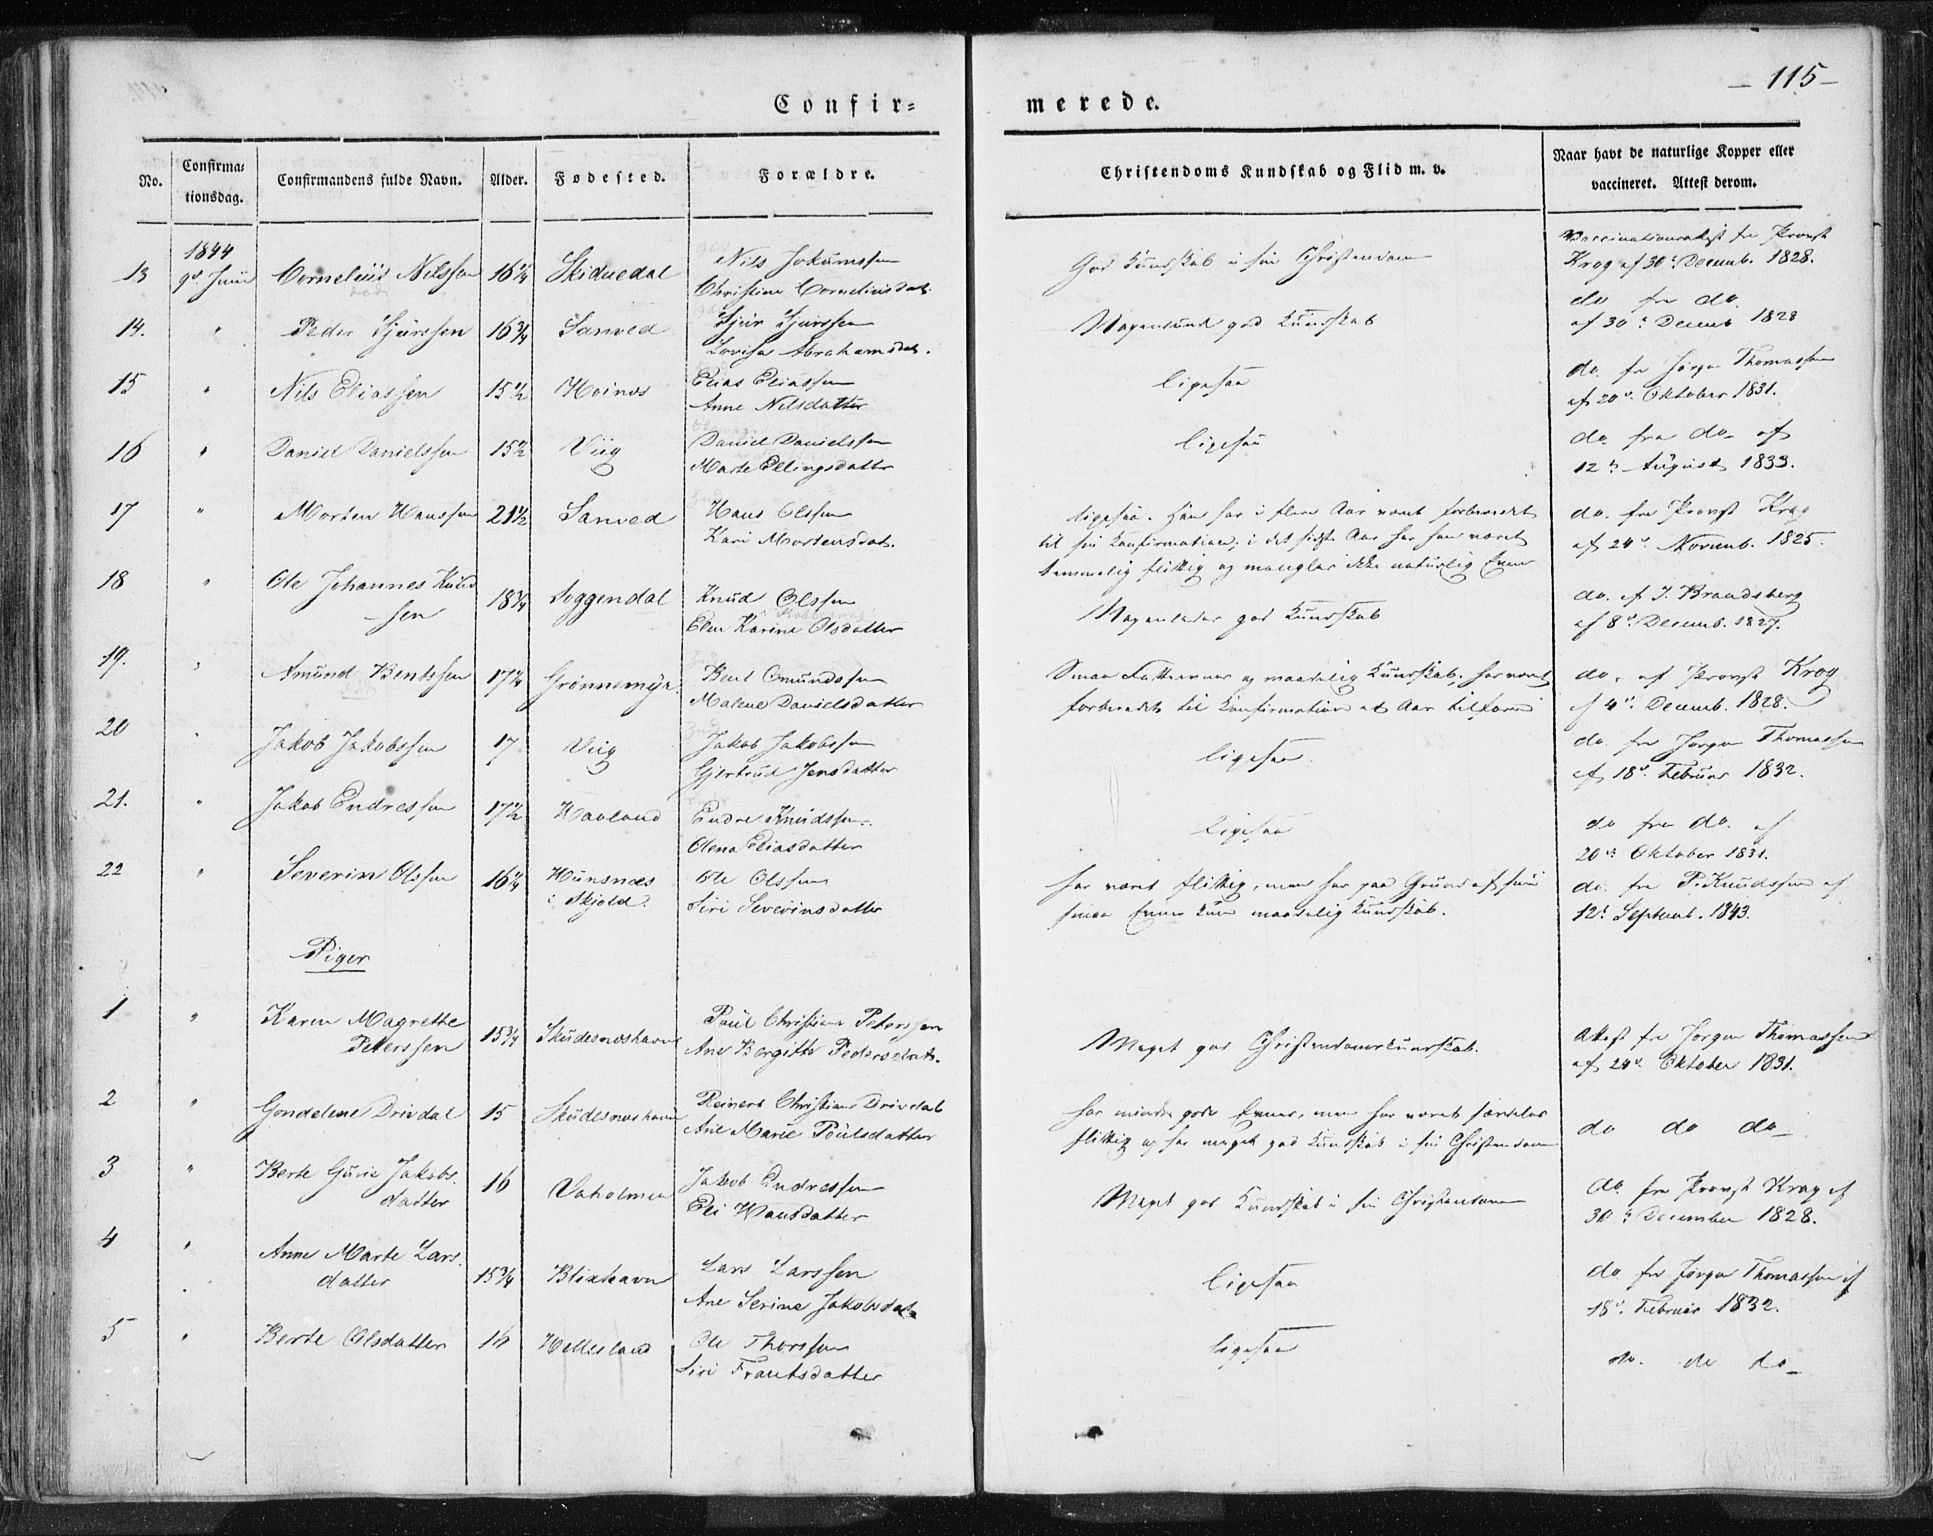 - 115 -
Confir=
merede.
No.
Confirma=
tionsdag.
Confirmandens fulde Navn.
Alder.
Fødested.
Forældre.
Christendoms Kundskab og Flid m. v.
Naar havt de naturlige Kopper eller
vaccineret. Attest derom.
1844
13 9de Junii Cornelius Nilssen 16 1/4 Skiduedal
Nils Jokumssen
Christine Corneliusdat.
God Kundskab i sin Christendom
Vaccinationsattest fra Provst
Krog af 30te Decemb. 1828.
14. " Peder Sjurssen 16 3/4 Sanved
Sjur Sjurssen
Lovise Abrahamsdat.
god Kundskab
do fra do.
af 30te Decemb 1828
15 " Nils Eliassen 15 1/2 Hoines
Elias Eliassen
Anne Nilsdatter
ligesaa
do. fra Jørgen Thomassen
af 20de Oktober 1831.
16 " Daniel Danielssen 15 1/2 Viig
Daniel Danielssen
Marte Ellingsdatter
ligesaa
do. fra do. af
12te August 1833.
17 " Morten Hanssen 21 1/2 Sanved
Hans Olssen
Kari Mortensdat.
ligesaa. Han har i flere Aar været forberedet
til sin Konfirmation; i det sidste Aar har han været
temmelig flittig og mangler ikke naturlig Evne
do. fra Provst Krog
af 24de Novemb. 1825.
18 " Ole Johannes Knud
sen
18 3/4 Soggendal
Knud Olssen
Elen Karine Olsdatter
god Kundskab
do. af J. Brandsberg
af 8de Decemb. 1827.
19. " Amund Bentssen 17 1/4 Grønnemyr
Bent Omundssen
Malene Danielsdatter
Smaa Fatteevner og maadelig Kundskab, har været
forberedet til Konfirmation et Aar tilforn
do. af Provst Krog
af 4de Decemb. 1828.
20 " Jakob Jakobssen 17 Viig
Jakob Jakobssen
Gjertrud Jensdatter
ligesaa.
do. fra Jørgen Thomassen
af 18de Februar 1832.
21. " Jakob Endressen 17 1/2 Haaland
Endre Knudssen
Olena Eliasdatter
ligesaa
do fra do. af
20de Oktober 1831.
22 " Severin Olssen 16 1/4 Hunsnæs
i Skjold.
Ole Olssen
Siri Severinsdatter
har været flittig, men har paa Grund af sine
smaa Evner kun maadelig Kundskab.
do. fra P. Knudssen af
12te Septemb. 1843.
Piger
1 " Karen Magrethe
Peterssen
15 3/4 Skudesnæshavn
Paul Christian Peterssen
Ane Bergitte Pedersdat.
Meget god Christendomskundskab.
Attest fra Jørgen Thomassen
af 24de Oktober 1831.
2 " Gondelene Drivdal 15 Skudesnæshavn
Reinert Christian Drivdal
Ane Marie Poulsdatter
har mindre gode Evner, men har været særdeles
flittig og har meget god Kundskab i sin Christendom
do do do
3 " Berte Gurie Jakobs.
datter
16
Jakob Endressen
Eli Hansdatter
Meget god Kundskab i sin Christendom
do. fra Provst Krog af
30te December 1828.
4 " Anne Marte Lars.
datter
15 3/4 Blixhavn
Lars Larssen
Ane Serine Jakobsdat.
ligesaa
do. fra Jørgen Thomassen af
18de Februar 1832.
5 " Berte Olsdatter 16 Hellesland
Ole Thorssen
Siri Frantsdatter
ligesaa
do. do do